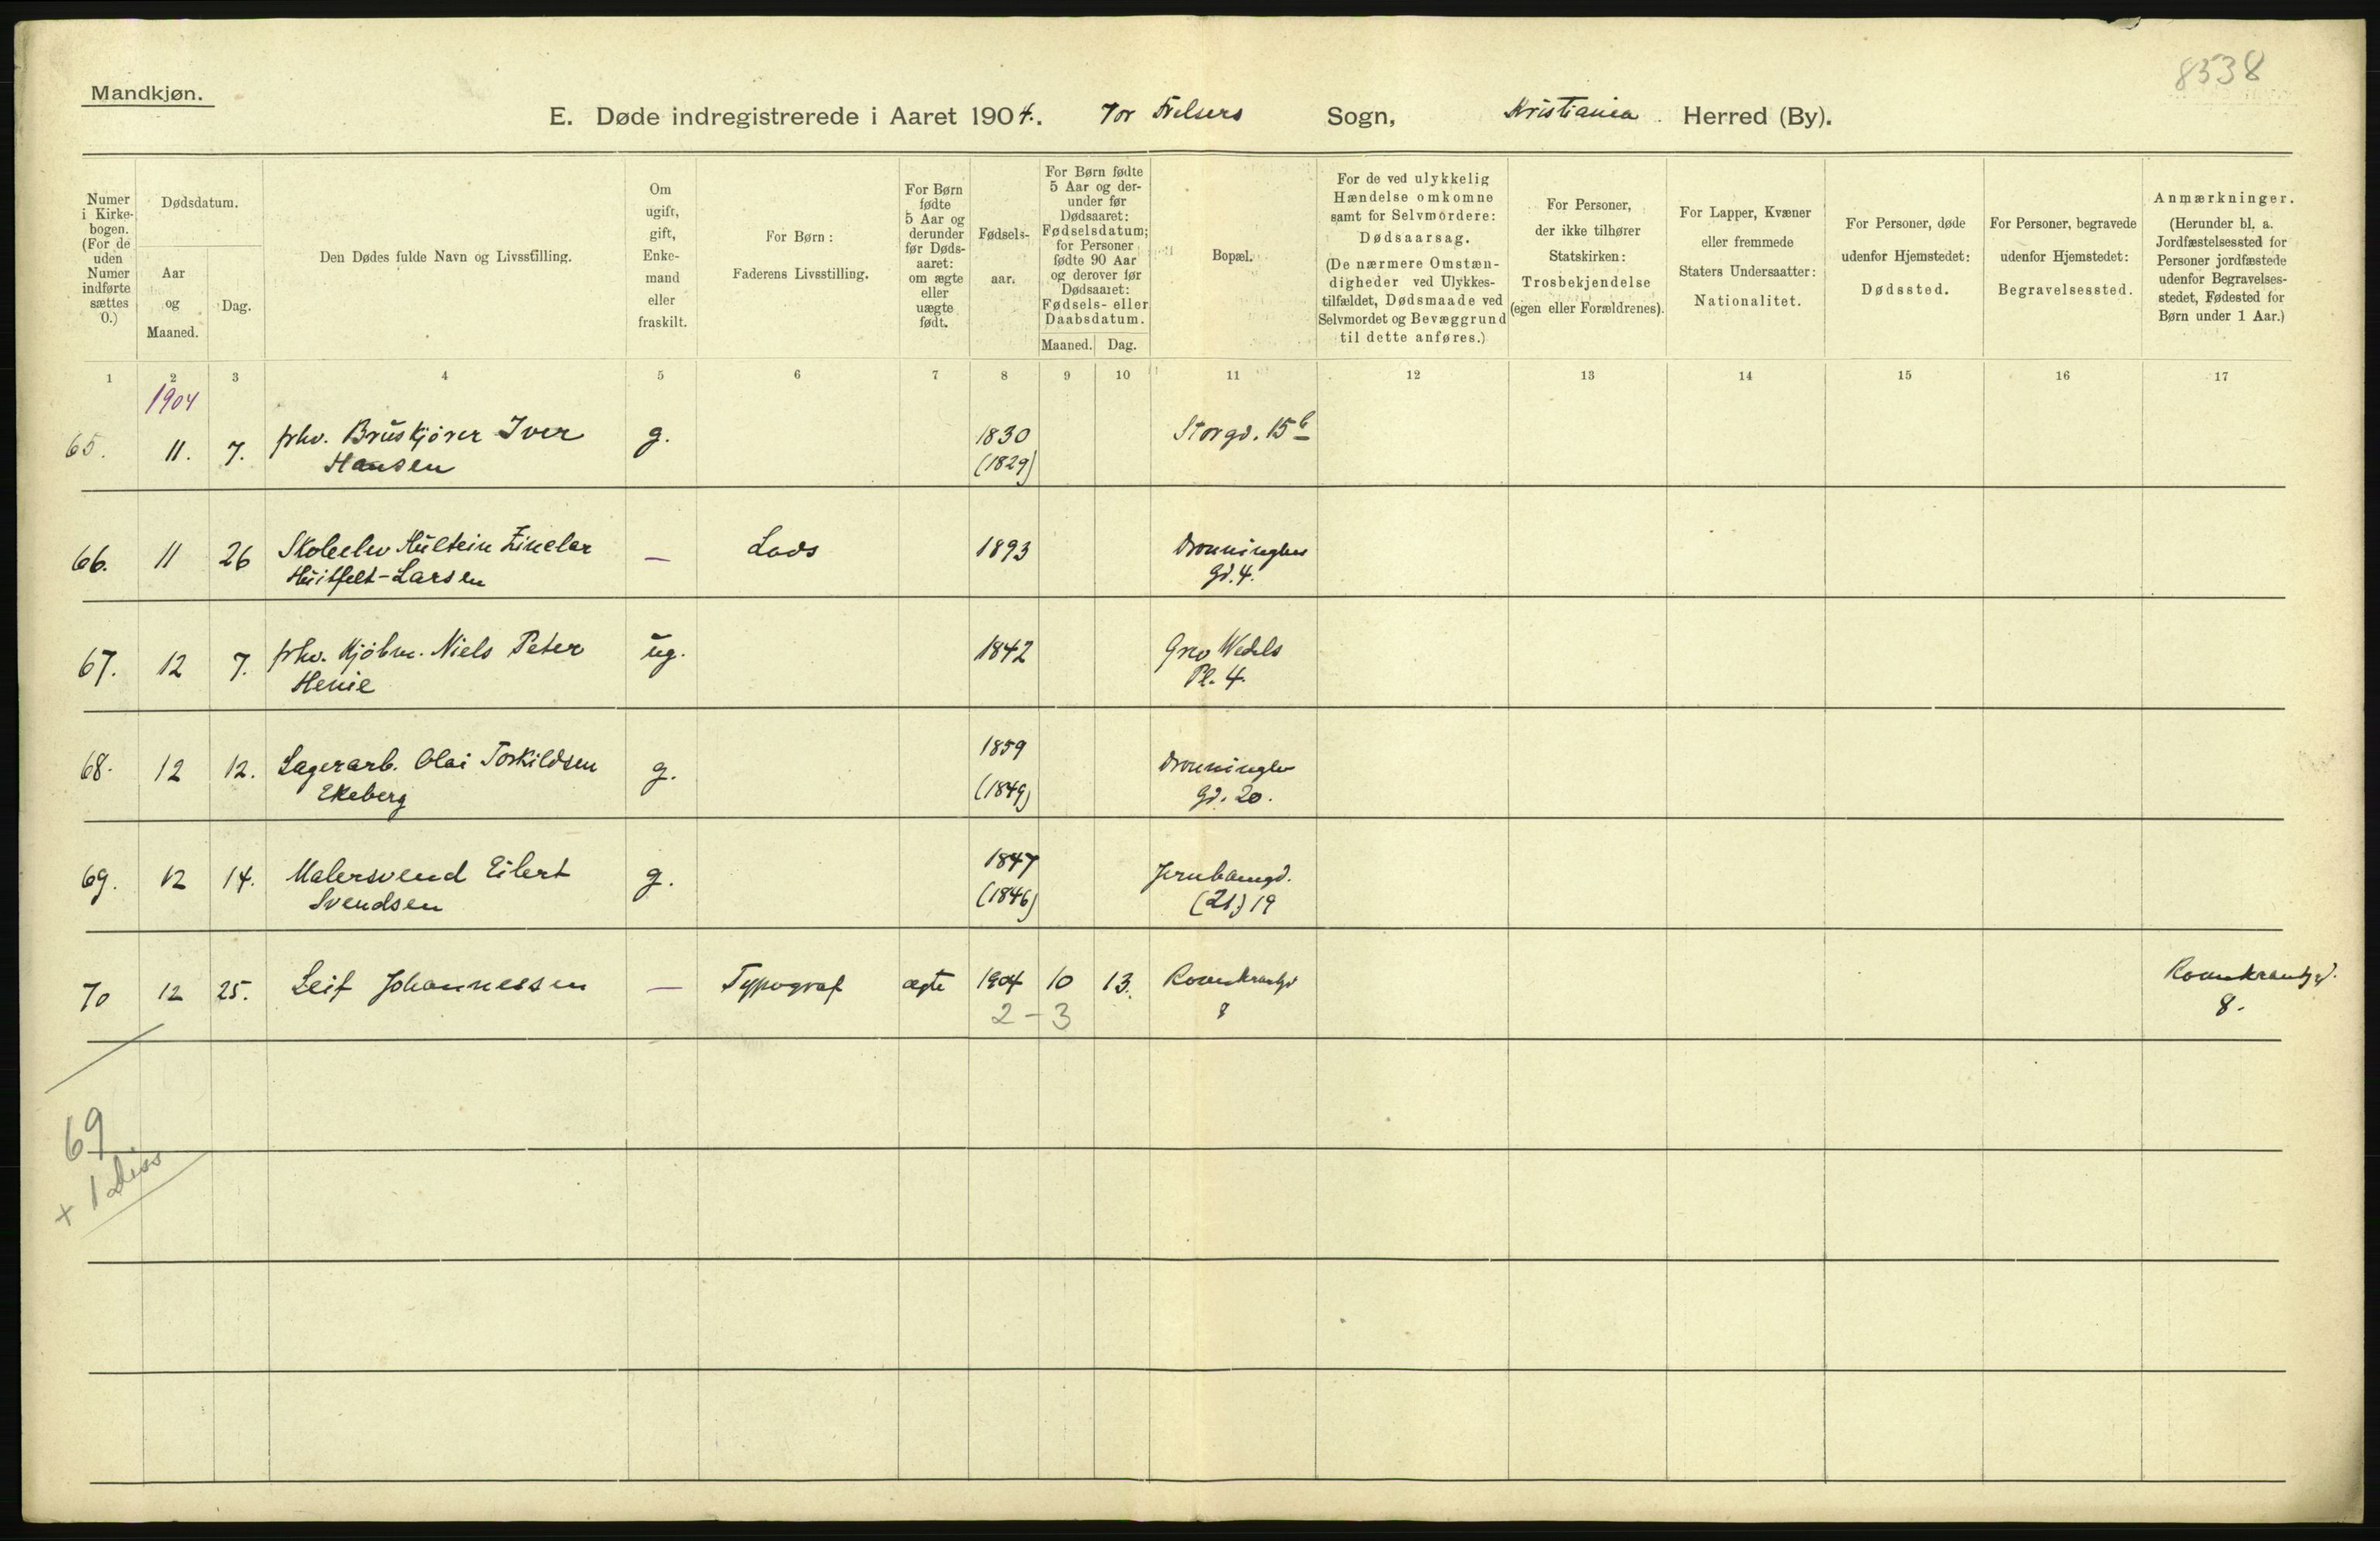 8538
Mandkjøn.
E. Døde indregistrerede i Aaret 1904. Vor Frelsers Sogn, Kristiania Herred (By).
Numer
i Kirke-
bogen.
(For de
uden
Numer
indførte
sættes
0.)
Dødsdatum.
Aar
og
Maaned.
Dag.
Den Dødes fulde Navn og Livsstilling.
Om
ugift,
gift,
Enke-
mand
eller
fraskilt.
For Børn:
Faderens Livsstilling.
For Børn
fødte
5 Aar og
derunder
før Døds-
aaret:
om ægte
eller
uægte
født.
Fødsels-
aar.
For Børn fødte
5 Aar og der-
under før
Dødsaaret:
Fødselsdatum;
for Personer
fødte 90 Aar
og derover før
Dødsaaret:
Fødsels- eller
Daabsdatum.
Maaned. Dag.
Bopæl.
For de ved ulykkelig
Hændelse omkomne
samt for Selvmordere:
Dødsaarsag.
(De nærmere Omstæn-
digheder ved Ulykkes-
tilfældet, Dødsmaade ved
Selvmordet og Bevæggrund
til dette anføres.)
For Personer,
der ikke tilhører
Statskirken:
Trosbekjendelse
(egen eller Forældrenes).
For Lapper, Kvæner
eller fremmede
Staters Undersaatter:
Nationalitet.
For Personer, døde
udenfor Hjemstedet:
Dødssted.
For Personer, begravede
udenfor Hjemstedet:
Begravelsessted.
Anmærkninger.
(Herunder bl. a.
Jordfæstelsessted for
Personer jordfæstede
udenfor Begravelses-
stedet, Fødested for
Børn under 1 Aar.)
1 2 3 4 5 6 7 8 9 10 11 12 13 14 15 16 17
1904
65. 11. 7. fhv. Bruskjører Iver g. 1830 Storgd. 15b
Hansen (1829)
66. 11 26 Skoleelev Einelar — Lods 1893 Dronningens
Huitfelt-Larsen gd. 4.
67. 12 7. fhv. Kjøbm. Niels Peter ug. 1842 Grev Wedels
Henie Pl. 4.
68. 12 12. Lagerarb. Olai Torkildsen g. 1859 Dronningens
Ekeberg (1849) gd. 20.
69. 12 14. Malersvend Eilert g. 1847 Jernbanegd.
Svendsen (1846) (21) 19
70 12 25. Leif Johannessen — Typograf ægte 1904 10 13. Rosenkrantzgd Rosenkrantzgd.
2 - 3 8 8.
69
+ 1 diss